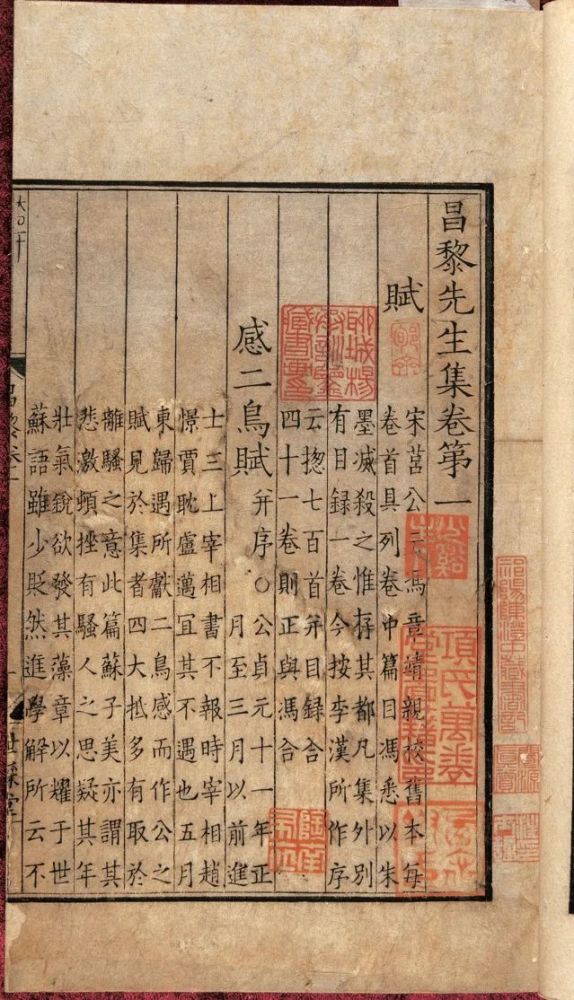 昌黎先生集卷第一
賦
宋莒公云馮章靖親校舊本每
卷首具列卷中篇目馮悉以朱
墨滅殺之惟存其都凡集外別
有目録一卷今按李漢所作序
云揔七百首并目録合
四十一卷則正與馮合
感二鳥賦
并序○公貞元十一年正
月至三月以前進
士三上宰相書不報時宰相趙
憬賈耽盧邁宜其不遇也五月
東歸遇所獻二鳥感而作公之
賦見於集者四大抵多有取於
離騷之意此篇蘇子美亦謂其
悲激頓挫有騷人之思疑其年
壯氣銳欲發其藻章以耀于世
蘇語雖少貶然進學解所云不
昌黎卷一
世綵堂
祁陽陳澄中藏書記
項氏萬卷堂圖籍印
聊城楊承訓鑒藏書畫印